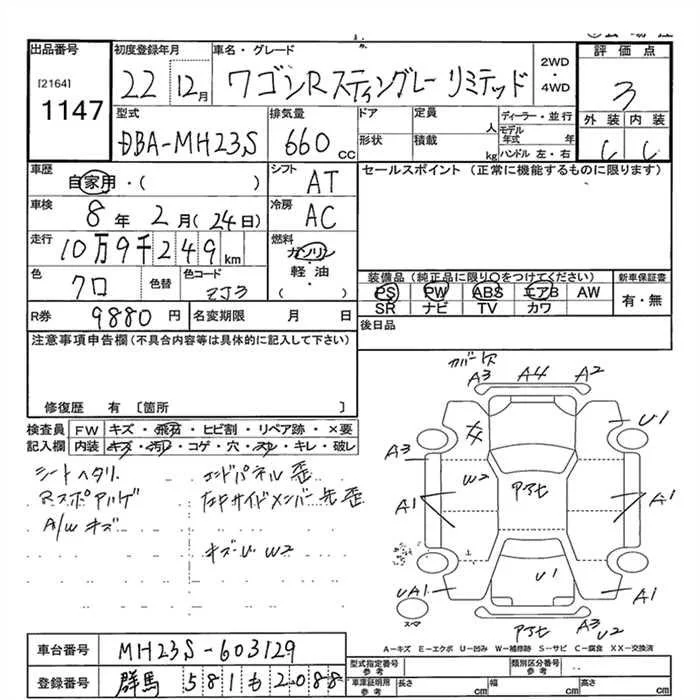 出品番号 初度登録年月 車名・グレード 2WD・4WD 評価点
[2164] 22 12月 ワゴンRスティングレー リミテッド 3
1147
型式 排気量 ドア 定員 人 ディーラー・並行 外装 内装
DBA-MH23S 660cc 形状 積載 kg モデル年式 年 ハンドル 左・右 C C
車歴 自家用・( ) シフト AT セールスポイント(正常に機能するものに限ります)
車検 8年 2月(24日) 冷房 AC
走行 10万9千249km 燃料 ガソリン・軽油・( )
色 クロ 色替 色コード ZJ3
装備品(純正品に限り○をつけてください) 新車保証書
PS PW ABS エアB AW 有・無
SR ナビ TV カワ
R券 9880円 名変期限 月 日 後日品
注意事項申告欄(不具合内容等は具体的に記入して下さい)
修復歴 有 [箇所 ]
検査員 FW キズ・飛石・ヒビ割・リペア跡・×要
記入欄 内装 キズ・汚レ・コゲ・穴・スレ・キレ・破レ
シートヘタリ エンドパネル歪
A/Wキズ
キズU W2
カバー欠
A3 A4 A2
U1
A3
W2
A1 A1
U1
UA1 A1
スペア
A3 U2
A=キズ E=エクボ U=凹み W=補修跡 S=サビ C=腐食 XX=交換済
車台番号 MH23S-603129
登録番号 群馬 581 も 2088
型式指定番号 参考 類別区分番号 参考
車庫証明用 参考 長さ cm 幅 cm 高さ cm